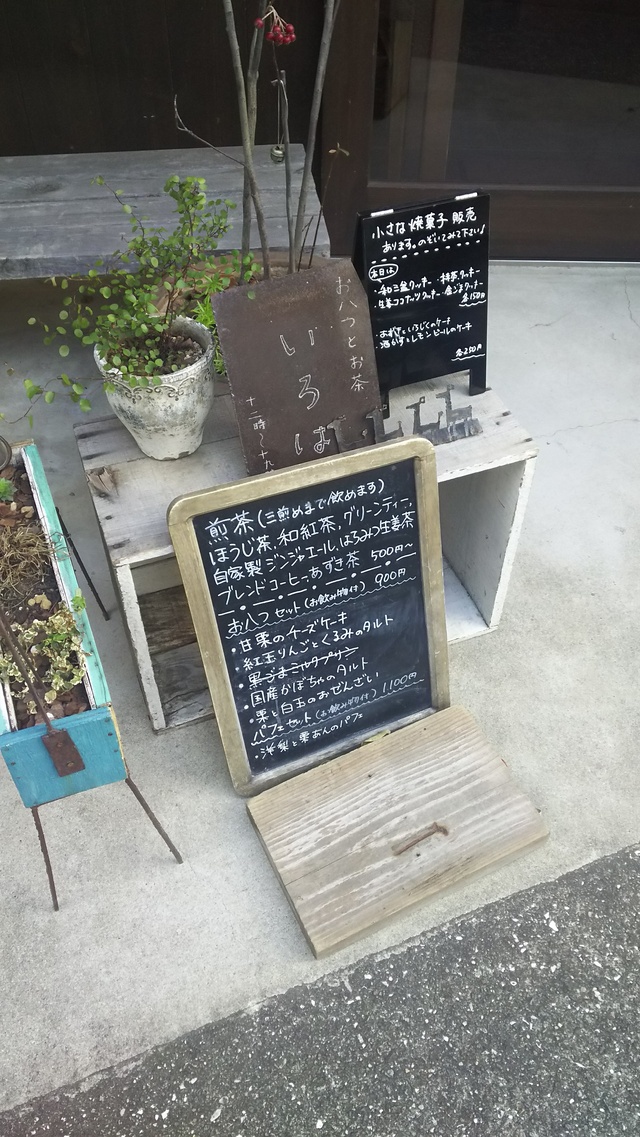 小さな焼菓子販売
あります。のぞいてみて下さい!
本日は
・和三盆クッキー ・抹茶クッキー
・生姜ココナッツクッキー ・金ごまクッキー
各150円
・あずきといちじくのケーキ
・酒かすとレモンピールのケーキ
各250円
お八つとお茶
いろは
十二時〜十九
煎茶(三煎めまで飲めます)
ほうじ茶、和紅茶、グリーンティー、
自家製ジンジャエール、はちみつ生姜茶
ブレンドコーヒー、あずき茶 500円〜
お八つセット(お飲み物付) 900円
・甘栗のチーズケーキ
・紅玉りんごとくるみのタルト
・黒ごまミルクプリン
・国産かぼちゃのタルト
・栗と白玉のおぜんざい
パフェセット(お飲み物付) 1100円
・洋梨と栗あんのパフェ